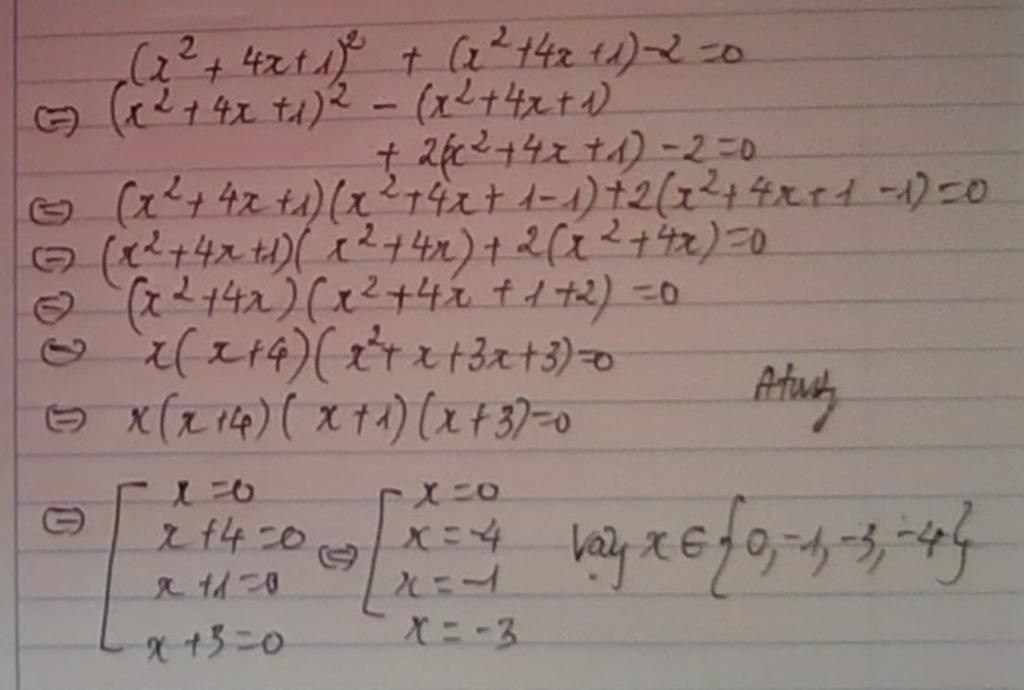 (x² + 4x + 1)² + (x² + 4x + 1) - 2 = 0
⇔ (x² + 4x + 1)² - (x² + 4x + 1)
+ 2(x² + 4x + 1) - 2 = 0
⇔ (x² + 4x + 1)(x² + 4x + 1 - 1) + 2(x² + 4x + 1 - 1) = 0
⇔ (x² + 4x + 1)(x² + 4x) + 2(x² + 4x) = 0
⇔ (x² + 4x)(x² + 4x + 1 + 2) = 0
⇔ x(x + 4)(x² + x + 3x + 3) = 0
⇔ x(x + 4)(x + 1)(x + 3) = 0
⇔ [ x = 0
x + 4 = 0
x + 1 = 0
x + 3 = 0
⇔ [ x = 0
x = -4
x = -1
x = -3
Vậy x ∈ {0, -1, -3, -4}